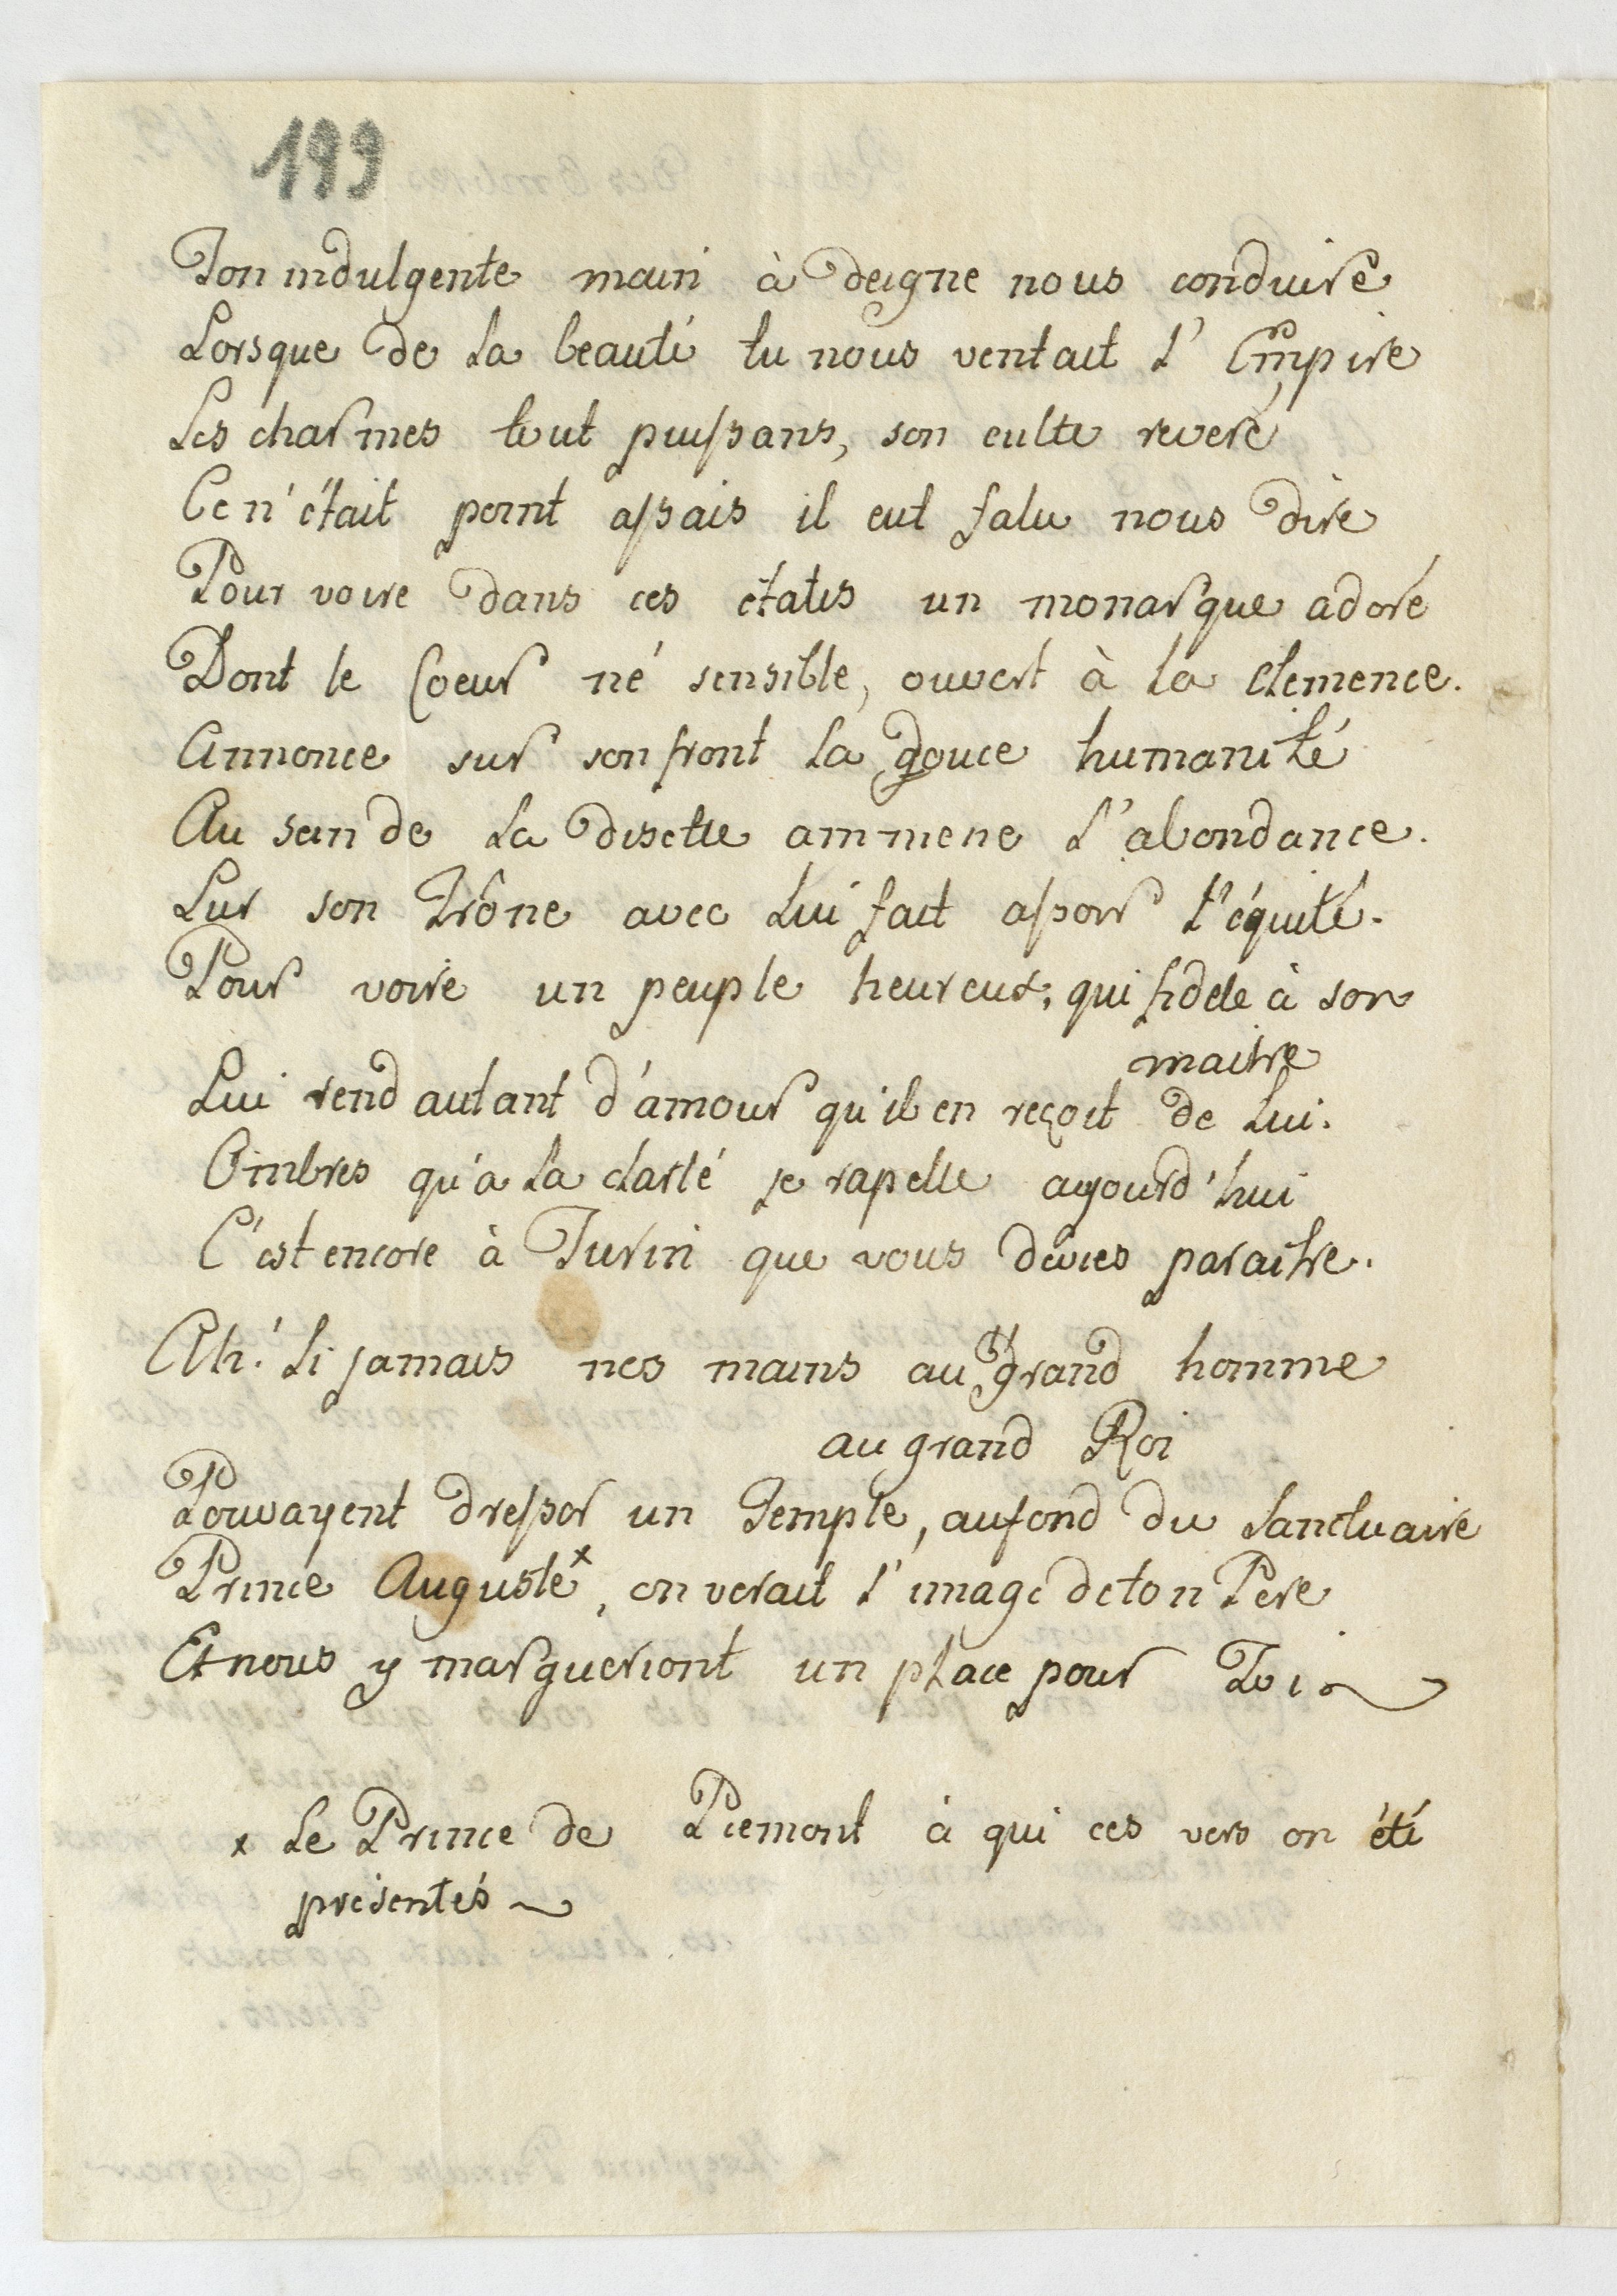 199
Ton indulgente main à deigne nous conduire
Lorsque de la beauté tu nous ventait l' Empire
Les charmes tout puissans, son culte reveré
Ce n'était point assais il eut falu nous dire
Pour voire dans ces états un monarque adoré
Dont le Coeur né sensible, ouvert à la clemence.
Annonce sur son front la douce humanité
Au sein de la disette ammene l'abondance.
Sur son Trône avec lui fait assoir l'équité.
Pour voire un peuple heureux; qui fidele à son
maitre
Lui rend autant d'amour qu'il en reçoit de lui.
Ombres qu'a la clarté je rapelle aujourd'hui
C'est encore à Turin que vous devies paraitre.
Ah! Si jamais nos mains au grand homme
au grand Roi
Pouvayent dresser un Temple, au fond du Sanctuaire
Prince Auguste x, on verait l'image de ton Pere
Et nous y marqueriont un place pour Toi
x Le Prince de Piemont à qui ces vers on été
présentés